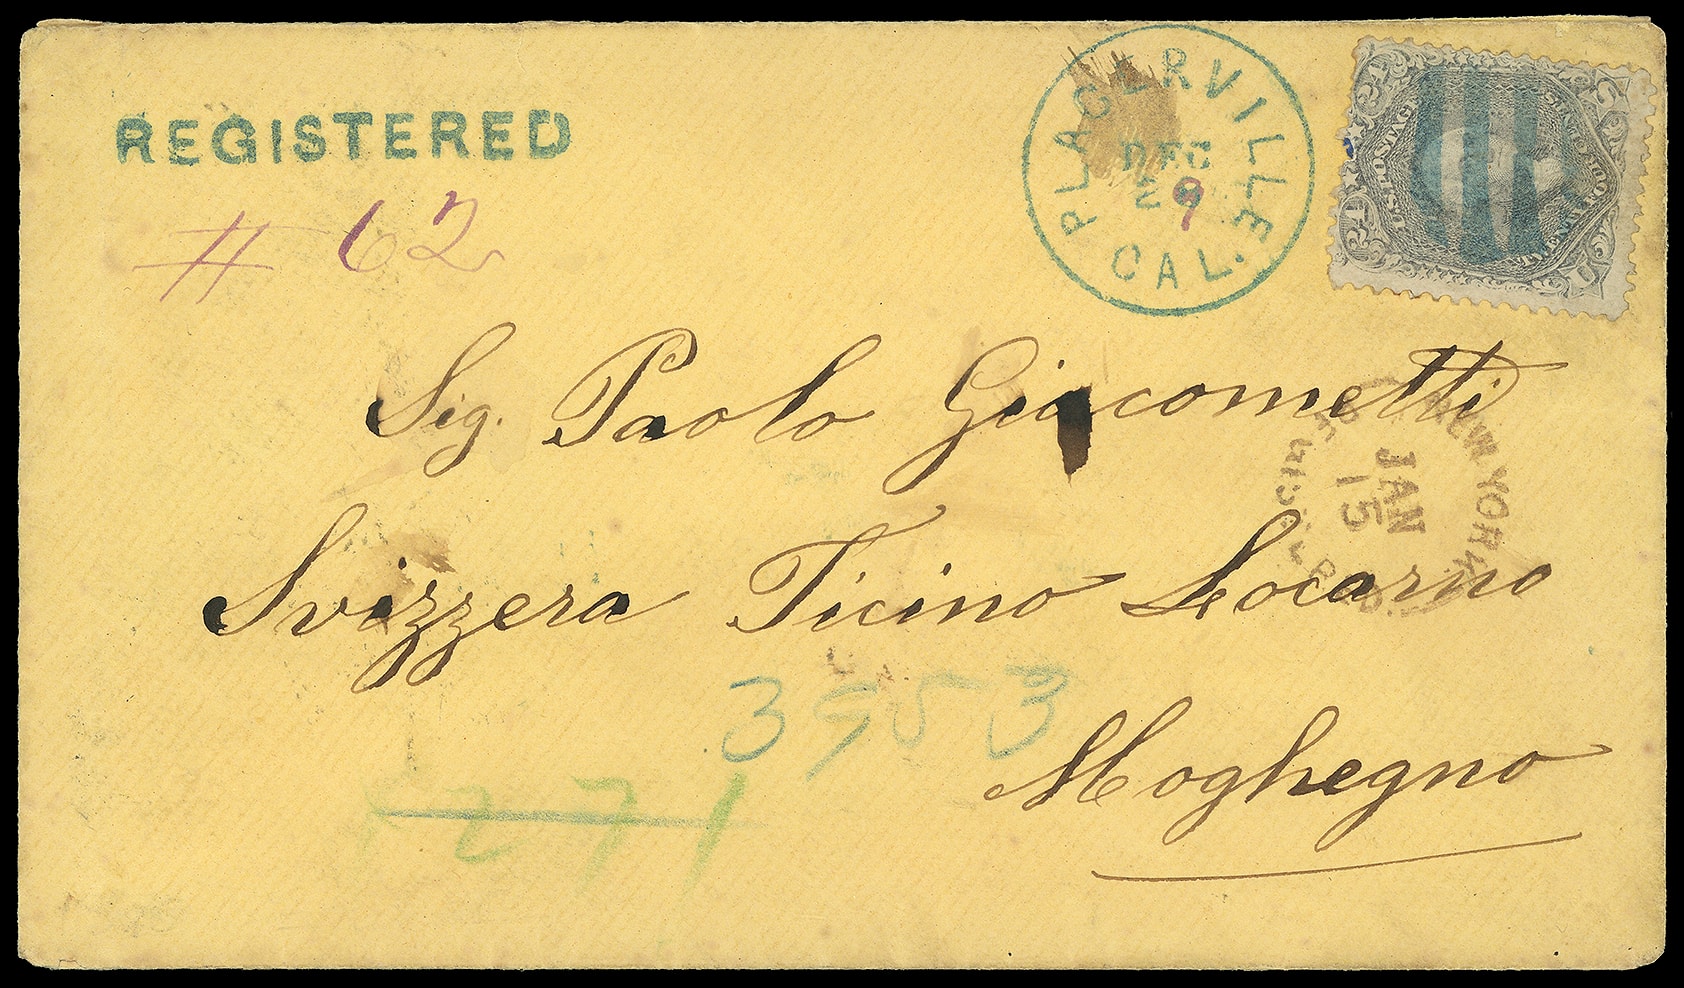 REGISTERED
# 62
PLACERVILLE
DEC
29
9
CAL.
24 24
U.S. POSTAGE
Sig. Paolo Giacometti
NEW YORK
JAN
15
Svizzera Ticino Locarno
3953
271
Moghegno